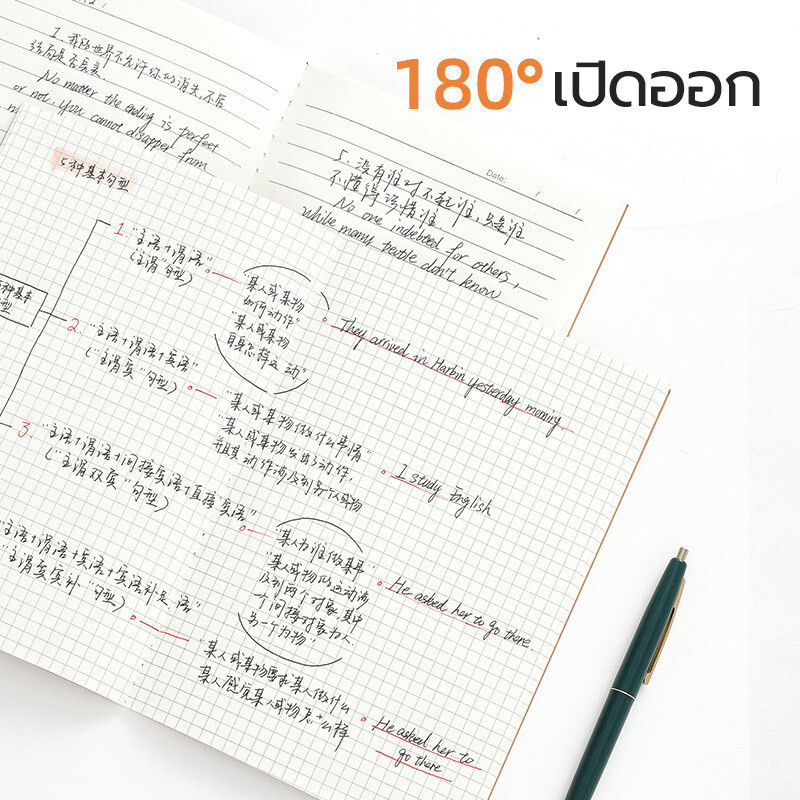 180° เปิดออก
1. 我的世界不允许你的消失,不管
结局是否完美.
No matter the ending is perfect
or not, you cannot disappear from
Date: / /
5. 没有谁对不起谁,只是谁
不懂得珍惜谁.
No one indebted for others,
while many people don't know
5种基本句型
1. "主语+谓语"
("主谓"句型)
"某人或某物
如何动作"
"某人或某物
自身怎样运动"
They arrived in Harbin yesterday morning.
种基本
型
2. "主语+谓语+宾语"
("主谓宾"句型)
"某人或某物做什么事情"
"某人或某物发出了动作,
并且其动作涉及到另个人或物
I study English
3. "主语+谓语+间接宾语+直接宾语"
("主谓双宾"句型)
"某人为谁做某事"
"某人或物的运动涉
及到两个对象,其中
一个间接对象为人,
另一个为物"
He asked her to go there.
"主语+谓语+宾语+宾语补足语"
"主谓宾宾补"句型)
"某人或某物要求某人做什么
某人感觉某人或物怎么样
He asked her to
go there